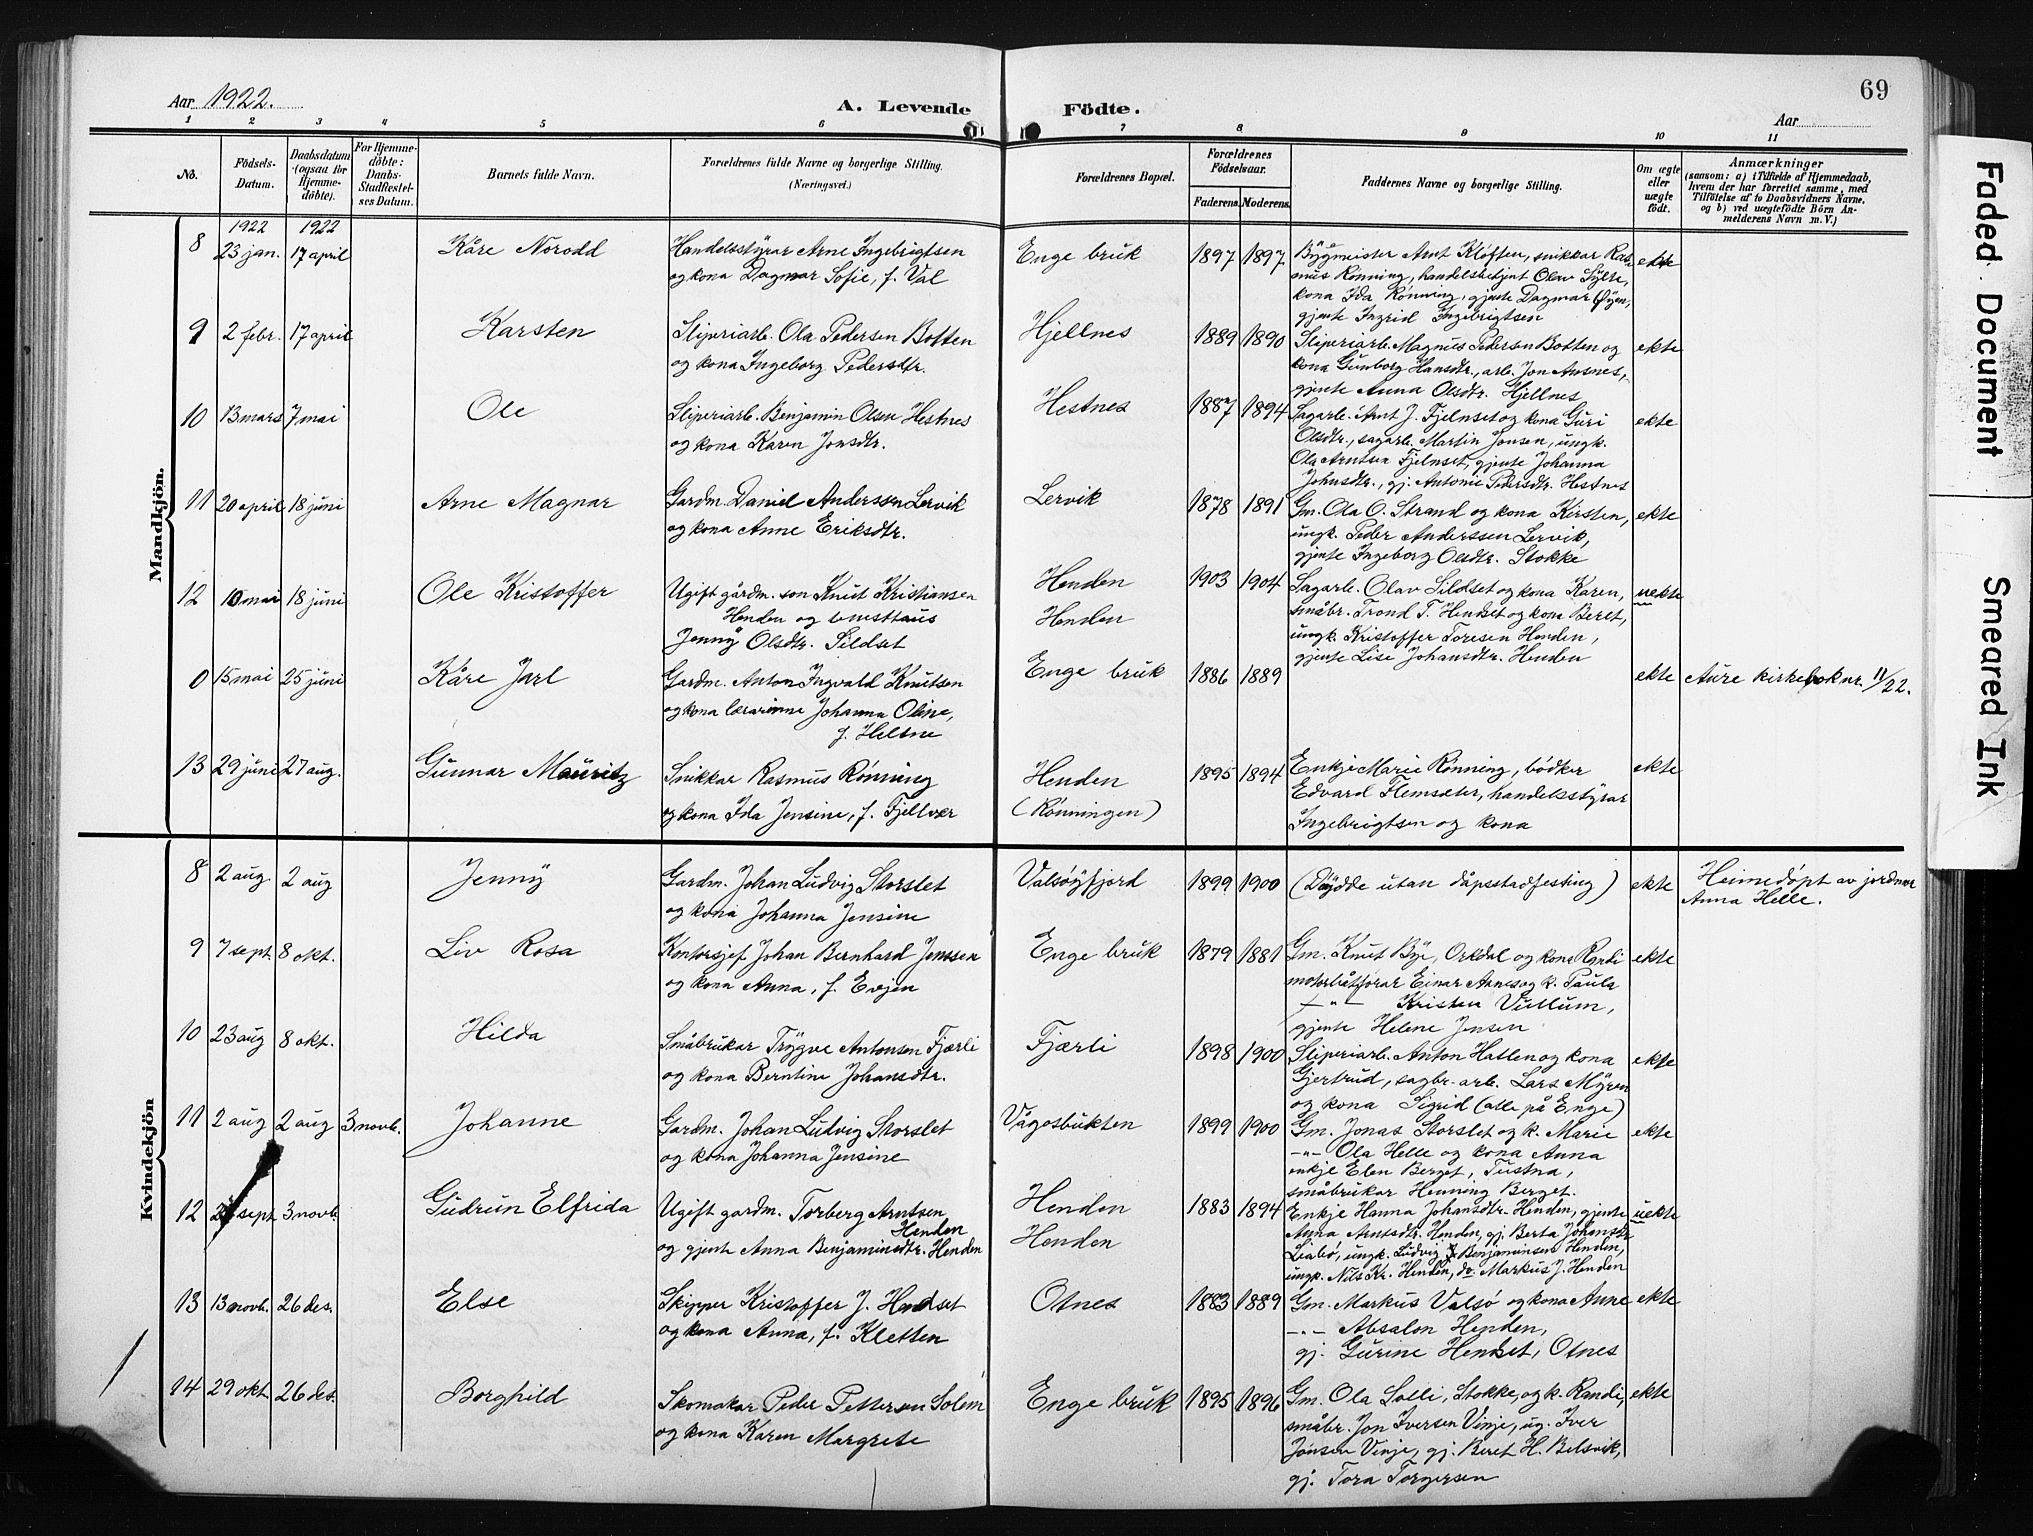 Aar 1922.
A. Levende Födte.
69
Aar
1 2 3 4 5 6 7 8 9 10 11
No.
Födsels-
Datum.
Daabsdatum
(ogsaa for
Hjemme-
döbte).
For Hjemme-
döbte:
Daabs-
Stadfæstel-
ses Datum.
Barnets fulde Navn.
Forældrenes fulde Navne og borgerlige Stilling.
(Næringsvei.)
Forældrenes Bopæl.
Forældrenes
Födselsaar.
Faderens. Moderens.
Faddernes Navne og borgerlige Stilling.
Om ægte
eller
uægte
födt.
Anmærkninger
(saasom: a) i Tilfælde af Hjemmedaab,
hvem der har forrettet samme, med
Tilföielse af to Daabsvidners Navne.
og b) ved uægtefödte Börn An-
melderens Navn m. V.)
Mandkjön.
1922 1922
8 23 jan. 17 april Kåre Norodd
Handelsstyrar Arne Ingebrigtsen
og kona Dagmar Sofie, f. Val
Enge bruk 1897 1897
Byggmeister Arnt Kløften, snikkar Ras-
mus Rønning, handelsbetjent Olav Sylte,
kona Ida Rønning, gjente Dagmar Øyen,
gjente Ingrid Ingebrigtsen
ekte
9 2 febr. 17 april Karsten
Sliperiarb. Ola Pedersen Botten
og kona Ingeborg Pedersdtr.
Hjellnes 1889 1890
Sliperiarb. Magnus Pedersen Botten og
kona Gunborg Hansdtr., arb. Jon Ansnes,
gjente Anna Olsdtr. Hjellnes
ekte
10 13 mars 7 mai Ole
Sliperiarb. Benjamin Olsen Hestnes
og kona Karen Jonsdtr.
Hestnes 1887 1894
Sagarb. Arnt J. Fjelnset og kona Guri
Olsdtr., sagarb. Martin Jonsen, ungk.
Ola Arntsen Fjelnset, gjente Johanna
Johnsdtr., gj. Antonie Pedersdtr. Hestnes
ekte
11 20 april 18 juni Arne Magnar
Gardm. Daniel Anderssen Lervik
og kona Anne Eriksdtr.
Lervik 1878 1891
Gm. Ola O. Strand og kona Kirsten,
ungk. Peder Anderssen Lervik,
gjente Ingeborg Olsdtr. Stokke
ekte
12 10 mai 18 juni Ole Kristoffer
Ugift gårdm. son Knut Kristiansen
Henden og brusttaus
Jenny Olsdtr. Sildset
Henden
Henden
1903 1904
Sagarb. Olav Sildset og kona Karen,
småbr. Trond T. Hendset og kona Beret,
ungk. Kristoffer Toresen Henden,
gjente Lise Johansdtr. Henden
uekte
0 15 mai 25 juni Kåre Jarl
Gardm. Anton Ingvald Knutsen
og kona lærarinne Johanna Oline,
f. Heltne
Enge bruk 1886 1889
ekte Aure kirkebok nr. 11/22.
13 29 juni 27 aug. Gunnar Mauritz
Snikkar Rasmus Rønning
og kona Ida Jensine, f. Fjellvær
Henden
(Rønningen)
1895 1894
Enkje Marie Rønning, bødker
Edvard Flemsæter, handelsstyrar
Ingebrigtsen og kona
ekte
Kvindekjön
8 2 aug. 2 aug Jenny
Gardm. Johan Ludvig Storslet
og kona Johanna Jensine
Valsøyfjord 1899 1900
(Døydde utan dåpsstadfesting)
ekte
Heimedøpt av jordmor
Anna Helle.
9 7 sept. 8 okt. Liv Rosa
Kontorsjef Johan Bernhard Jenssen
og kona Anna, f. Evjen
Enge bruk 1879 1881
Gm. Knut Bye, Orkdal og kona Randi
motorbåtførar Einar Arnes og k. Paula
—"— Kristen Vullum,
gjente Helene Jensen
ekte
10 23 aug 8 okt. Hilda
Småbrukar Trygve Antonsen Fjærli
og kona Berntine Johansdtr.
Fjærli 1898 1900
Sliperiarb. Anton Hatlen og kona
Gjertrud, sagbr. arb. Lars Myren
og kona Sigrid (alle på Enge)
ekte
11 2 aug 2 aug 3 novb. Johanne
Gardm. Johan Ludvig Storslet
og kona Johanna Jensine
Vågosbukten 1899 1900
Gm. Jonas Storslet og k. Marie
—"— Ola Helle og kona Anna
enkje Elen Berget, Tustna,
småbrukar Henning Berget.
ekte
12 sept 3 novb. Gudrun Elfrida
Ugift gardm. Torberg Arntsen
Henden
og gjente Anna Benjaminsdtr. Henden
Henden
Henden
1883 1894
Enkje Hanna Johansdtr. Henden, gjente
Anna Arntsdtr. Henden, gj. Berta Johansdtr.
Liabø, ungk. Ludvig Benjaminsen Henden,
ungk. Nils Kr. Henden, do. Markus J. Henden
uekte
13 13 novb. 26 des. Else
Skipper Kristoffer J. Hendset
og kona Anna, f. Kletten
Otnes 1883 1889
Gm. Markus Valsø og kona Anne
—"— Absalon Henden,
gj. Gurine Hendset, Otnes
ekte
14 29 okt. 26 des. Borghild
Skomakar Peder Pettersen Solem
og kona Karen Margrete
Enge bruk 1895 1896
Gm. Ola Solli, Stokke, og k. Randi,
småbr. Jon Iversen Vinje, ug. Iver
Jonsen Vinje, gj. Beret H. Belsvik,
gj. Tora Torgersen
ekte
Faded Document Smeared Ink